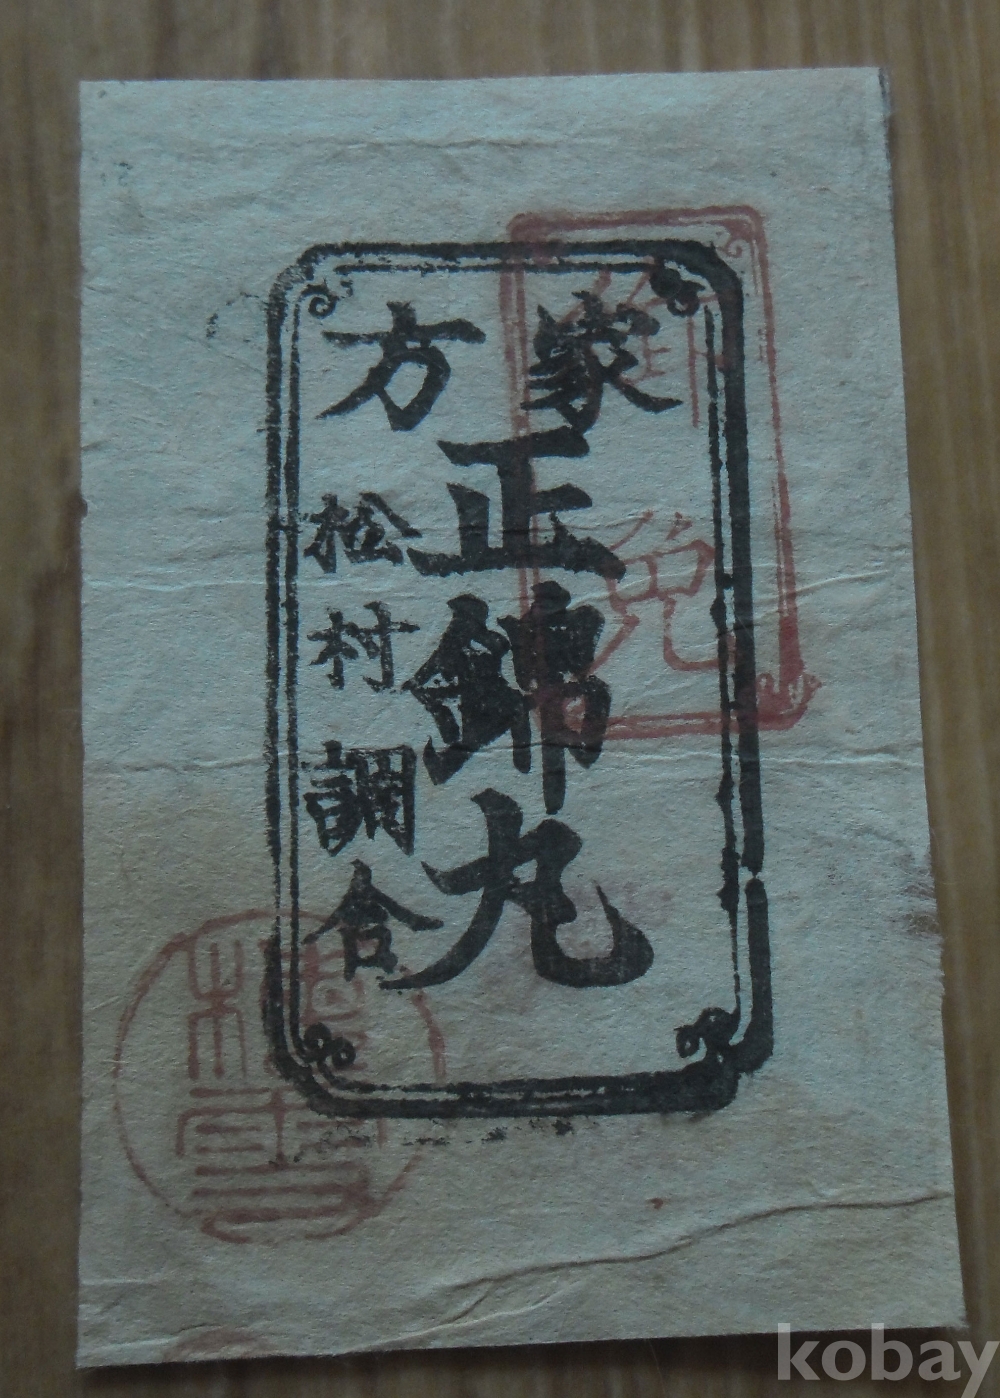 家方
正錦丸
松村調合
免
kobay